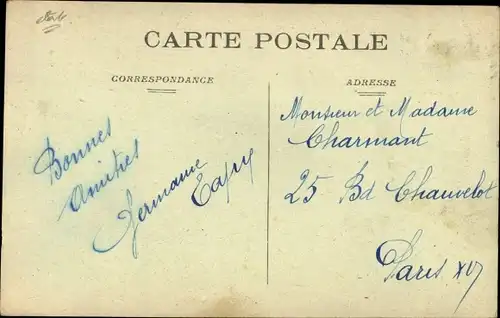 CARTE POSTALE
CORRESPONDANCE
ADRESSE
Bonnes
Amitiés
Germaine
Monsieur et Madame
Charmant
25 Bd Chauvelot
Paris XV